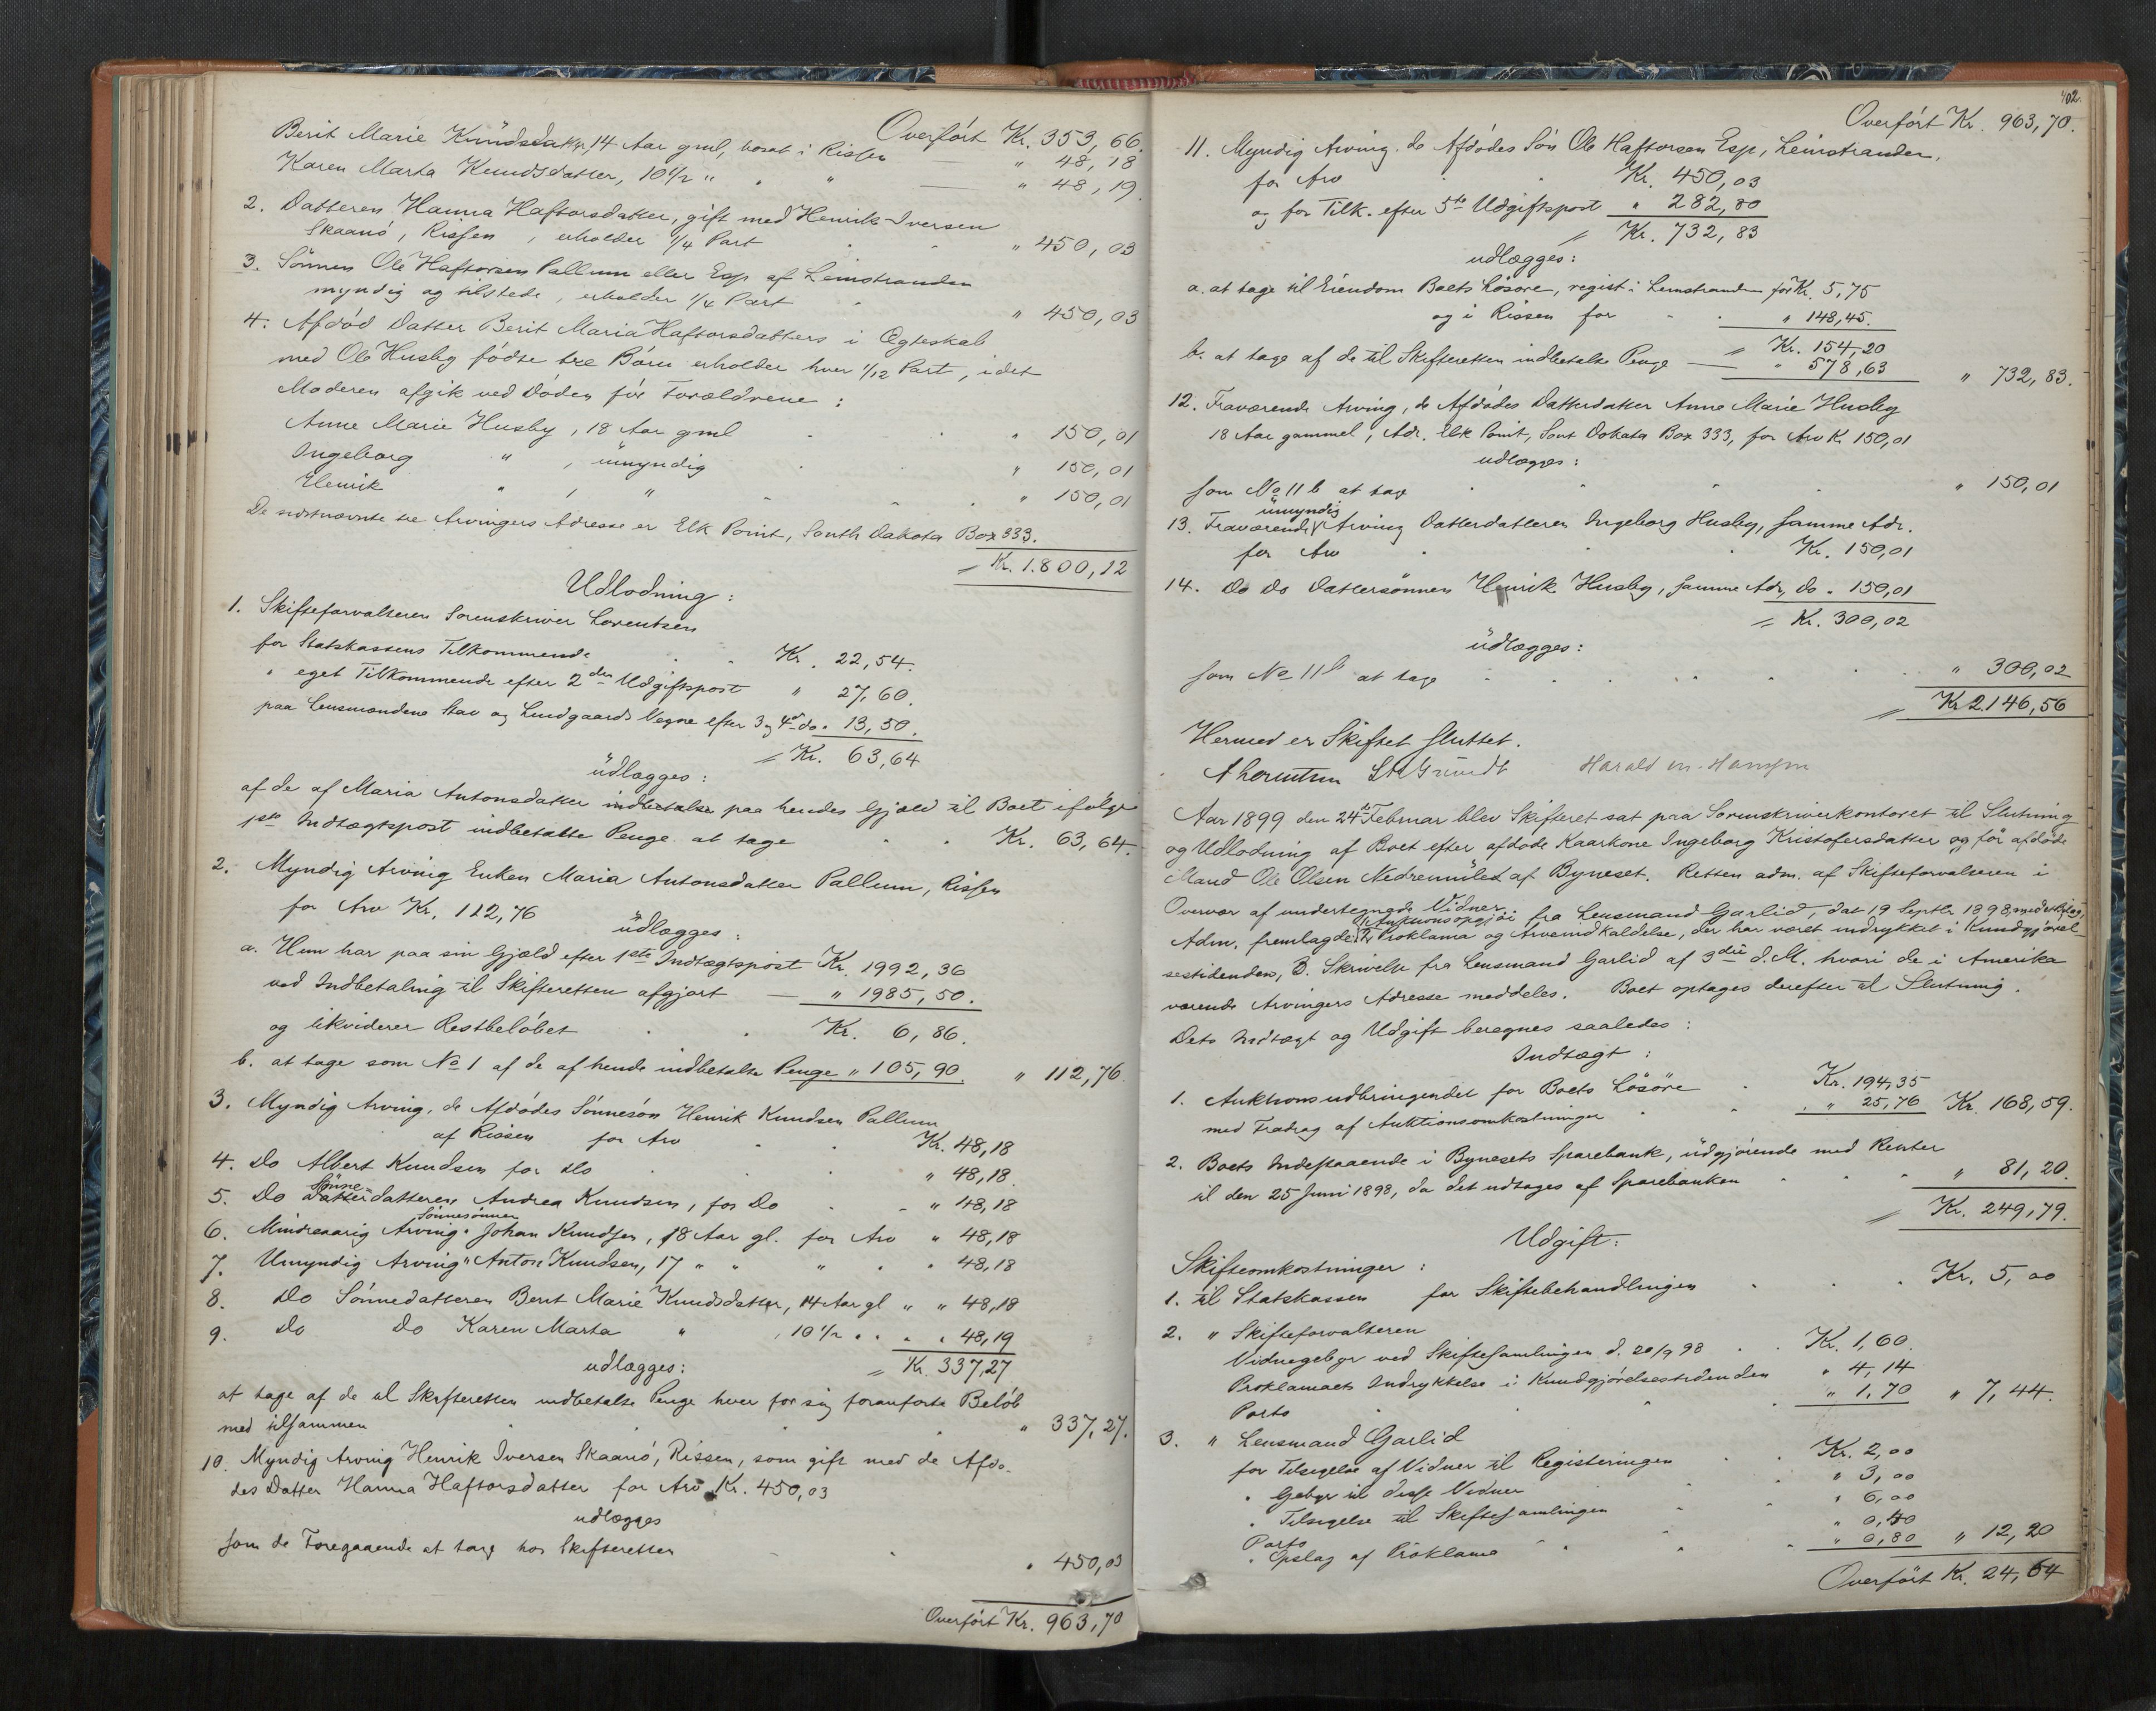 Overført Kr. 353,66.
Berit Marie Knudsdatter, 14 Aar gml, bosat i Rissen " 48,18
Karen Marta Knudsdatter, 10 1/2 " " " — " 48,19.
2. Datteren Hanna Haftorsdatter, gift med Henrik Iversen
Skaanö, Rissen, erholder 1/4 Part " 450,03
3. Sönnen Ole Haftorsen Pallum eller Esp af Leinstranden
myndig og tilstede, erholder 1/4 Part " 450,03
4. Afdöd Datter Berit Maria Haftorsdatters i Ægteskab
med Ole Husby födte tre Börn erholder hver 1/12 Part, idet
Moderen afgik ved Döden för Forældrene:
Anne Marie Husby, 18 Aar gml " 150,01
Ingeborg " , umyndig " 150,01
Henrik " , " " 150,01
De sidstnævnte tre Arvingers Adresse er Elk Point, South Dakota Box 333.
= Kr. 1.800,12
Udlodning:
1. Skifteforvalteren Sorenskriver Lorentsen
for Statskassens Tilkommende Kr. 22,54.
" eget Tilkommende efter 2den Udgiftspost " 27,60.
paa Lensmændene Stav og Lundgaards Vegne efter 3 og 4de do " 13,50.
= Kr. 63,64
udlægges:
af de af Maria Antonsdatter indbetalte paa hendes Gjæld til Boet ifølge
1ste Indtægtspost indbetalte Penge at tage Kr. 63,64.
2. Myndig Arving Enken Maria Antonsdatter Pallum, Rissen
for Arv Kr. 112,76
udlægges:
a. Hun har paa sin Gjæld efter 1ste Indtægtspost Kr. 1992,36
ved Indbetaling til Skifteretten afgjort — " 1985,50.
og likviderer Restbelöbet Kr. 6,86.
b. at tage som No 1 af de af hende indbetalte Penge " 105,90. " 112,76.
3. Myndig Arving, de Afdödes Sönnesön Henrik Knudsen Pallum
af Rissen for Arv Kr. 48,18
4. Do Albert Knudsen for do " 48,18.
Sönne
5. Do Datterdatteren Andrea Knudsen, for Do " 48,18
Sönnesönnen
6. Mindreaarig Arving " Johan Knudsen, 18 Aar gl. for Arv " 48,18
7. Umyndig Arving " Anton Knudsen, 17 " " " " 48,18
8. Do Sönnedatteren Berit Marie Knudsdatter, 14 Aar gl " " 48,18
9. Do Do Karen Marta " , 10 1/2 " " " " 48,19
udlægges: = Kr. 337,27
at tage af de til Skifteretten indbetalte Penge hver for sig foranførte Belöb
med tilsammen " 337,27.
10. Myndig Arving Henrik Iversen Skaanö, Rissen, som gift med de Afdö-
des Datter Hanna Haftorsdatter for Arv Kr. 450,03
udlægges
som de Foregaaende at tage hos Skifteretten " 450,03
Overfört Kr. 963,70
402.
Overfört Kr. 963,70.
11. Myndig Arving. de Afdödes Sön Ole Haftorsen Esp, Leinstranden,
for Arv Kr. 450,03
og for Tilk. efter 5te Udgiftspost " 282,80
= Kr. 732,83
udlægges:
a. at tage til Eiendom Boets Lösöre, regist. i Leinstranden for Kr. 5,75
og i Rissen for " 148,45.
= Kr. 154,20
b. at tage af de til Skifteretten indbetalte Penge — " 578,63 " 732,83.
12. Fraværende Arving, de Afdödes Datterdatter Anne Marie Husby
18 Aar gammel, Adr. Elk Point, Sout Dokata Box 333, for Arv K. 150,01
udlægges:
som No 11 b at tage " 150,01
umyndig
13. Fraværende Arving Datterdatteren Ingeborg Husby, samme Adr.
for Arv Kr. 150,01
14. Do Do Dattersönnen Henrik Husby, samme Adr, do " 150,01
= Kr. 300,02
udlægges:
som No 11 b at tage " 300,02
= Kr 2146,56
Hermed er Skiftet sluttet.
A Lorentsen St Grundt Harald M. Hansen
Aar 1899 den 24de Februar blev Skifteret sat paa Sorenskriverkontoret til Slutning
og Udlodning af Boet efter afdöde Kaarkone Ingeborg Kristofersdatter og för afdöde
Mand Ole Olsen Nedremület af Byneset. Retten adm. af Skifteforvalteren i
Overvær af undertegnede Vidner.
Adm. fremlagde 1, Auktionsopgjör fra Lensmand Garlid, dat 19 Septbr 1898, med
2, Proklama og Arveindkaldelse, der har været indrykket i Kundgjörel-
sestidenden, 3. Skrivelse fra Lensmand Garlid af 3die d.M. hvori de i Amerika
værende Arvingers Adresse meddeles. Boet optages derefter til Slutning.
Dets Indtægt og Udgift beregnes saaledes:
Indtægt:
1. Auktionsudbringendet for Boets Lösöre Kr. 194,35
med Fradrag af Auktionsomkostninger " 25,76 Kr. 168,59.
2. Boets Indestaaende i Bynesets Sparebank, udgjörende med Renter
til den 25 Juni 1898, da det udtoges af Sparebanken " 81,20.
= Kr. 249,79.
Udgift:
Skifteomkostninger:
1. til Statskassen for Skiftebehandlingen Kr. 5,00
2. " Skifteforvalteren
Vidnegebyr ved Skiftesamlingen d. 20/9 98 Kr. 1,60.
Proklamaets Indrykkelse i Kundgjörelsestidenden " 4,14
Porto " 1,70 " 7,44.
3. " Lensmand Garlid
for Tilsigelse af Vidner til Registeringen Kr. 2,00
" Gebyr til disse Vidner " 3,00
" Tilsigelse til Skiftesamlingen " 6,00
Porto " 0,40
" Opslag af Proklama " 0,80 " 12,20
Overfört Kr. 24,64